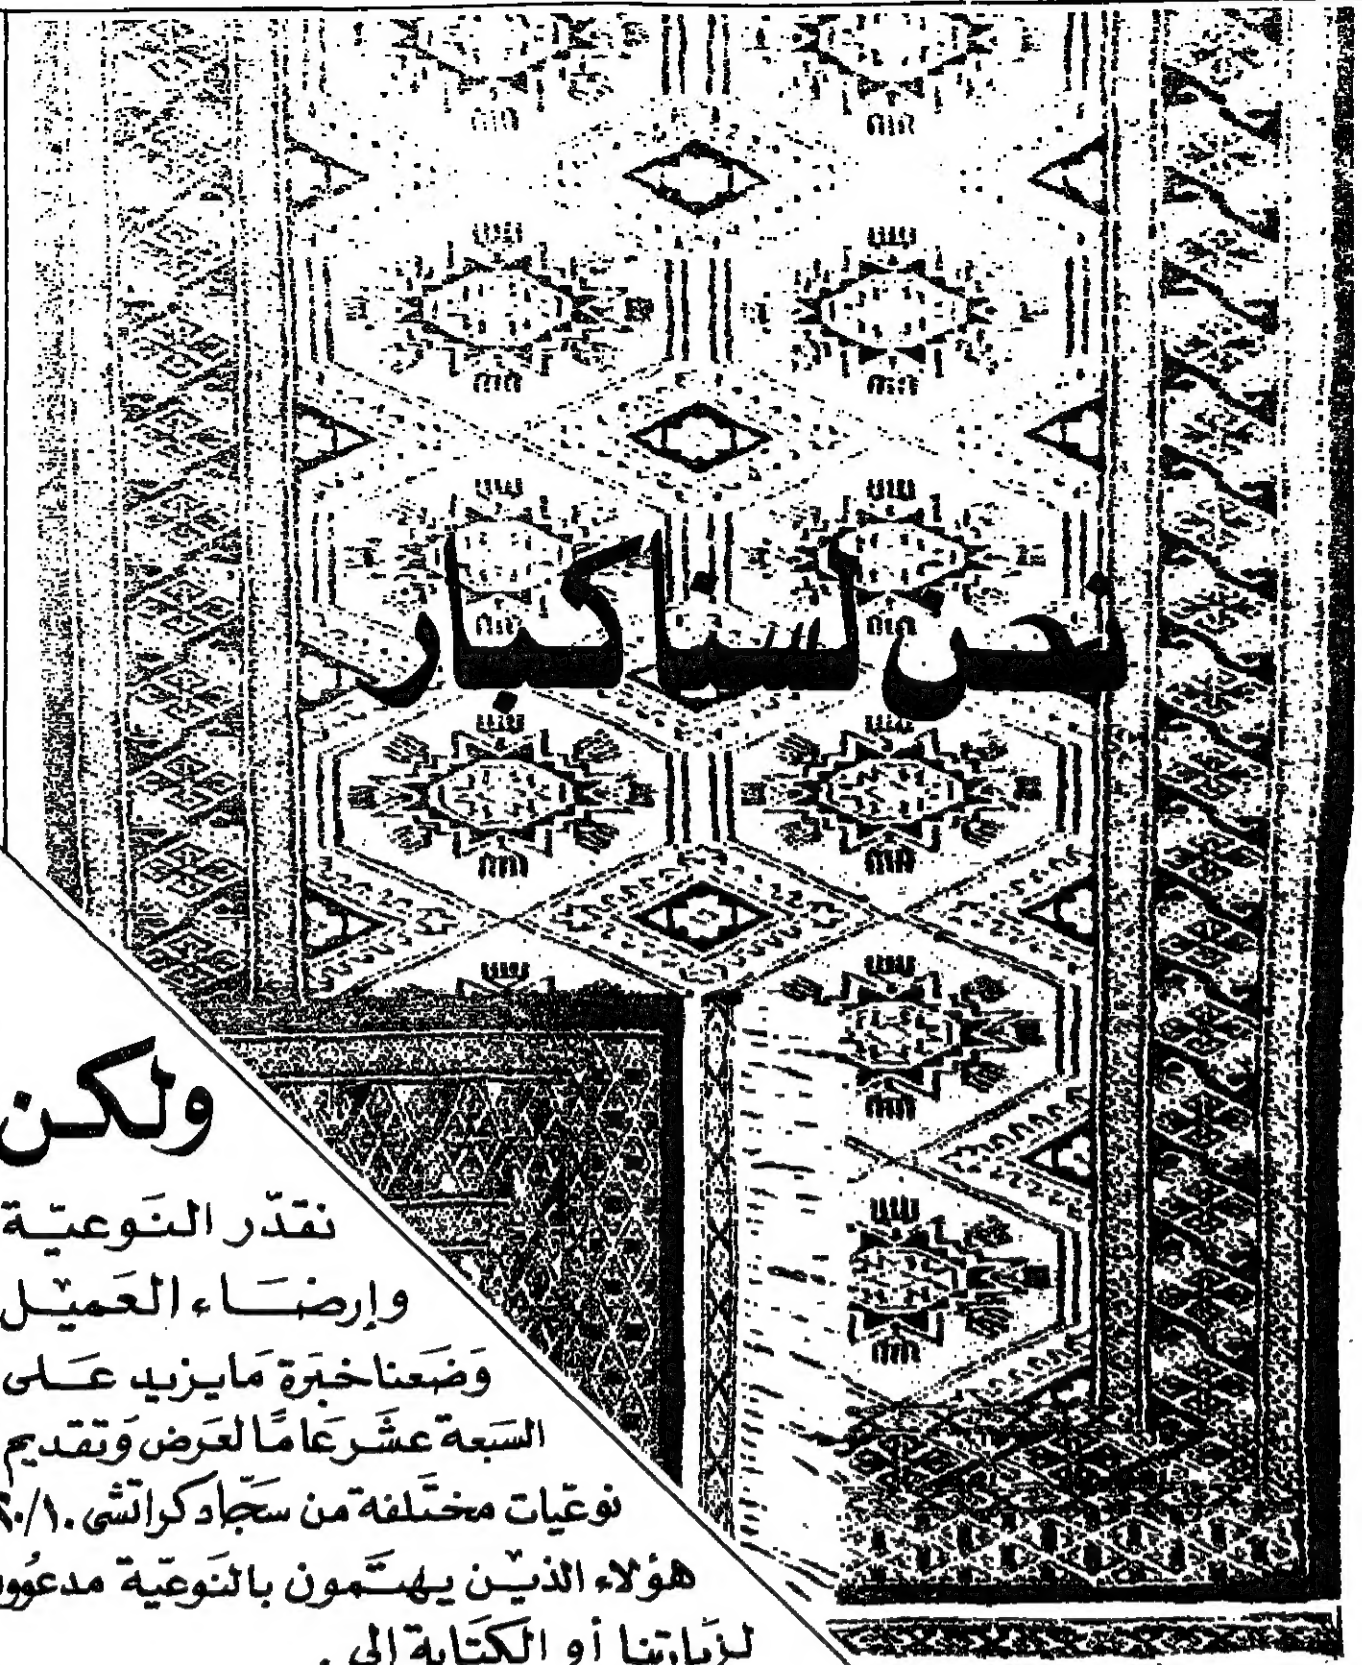 نحن لسنا كبار
ولكن
نقدّر النَوعيّة
وإرضَاء العَميْل
وَضَعنا خبَرة مَايزيد عَلى
السَبعة عشَر عَامًا لعَرض وَتقديم
نوعيّات مختَلفة من سَجّاد كراتشى
هؤلاء الذيْن يهتَمون بالنَوعيّة
لزيَارتنا أو الكتَابة إلى .